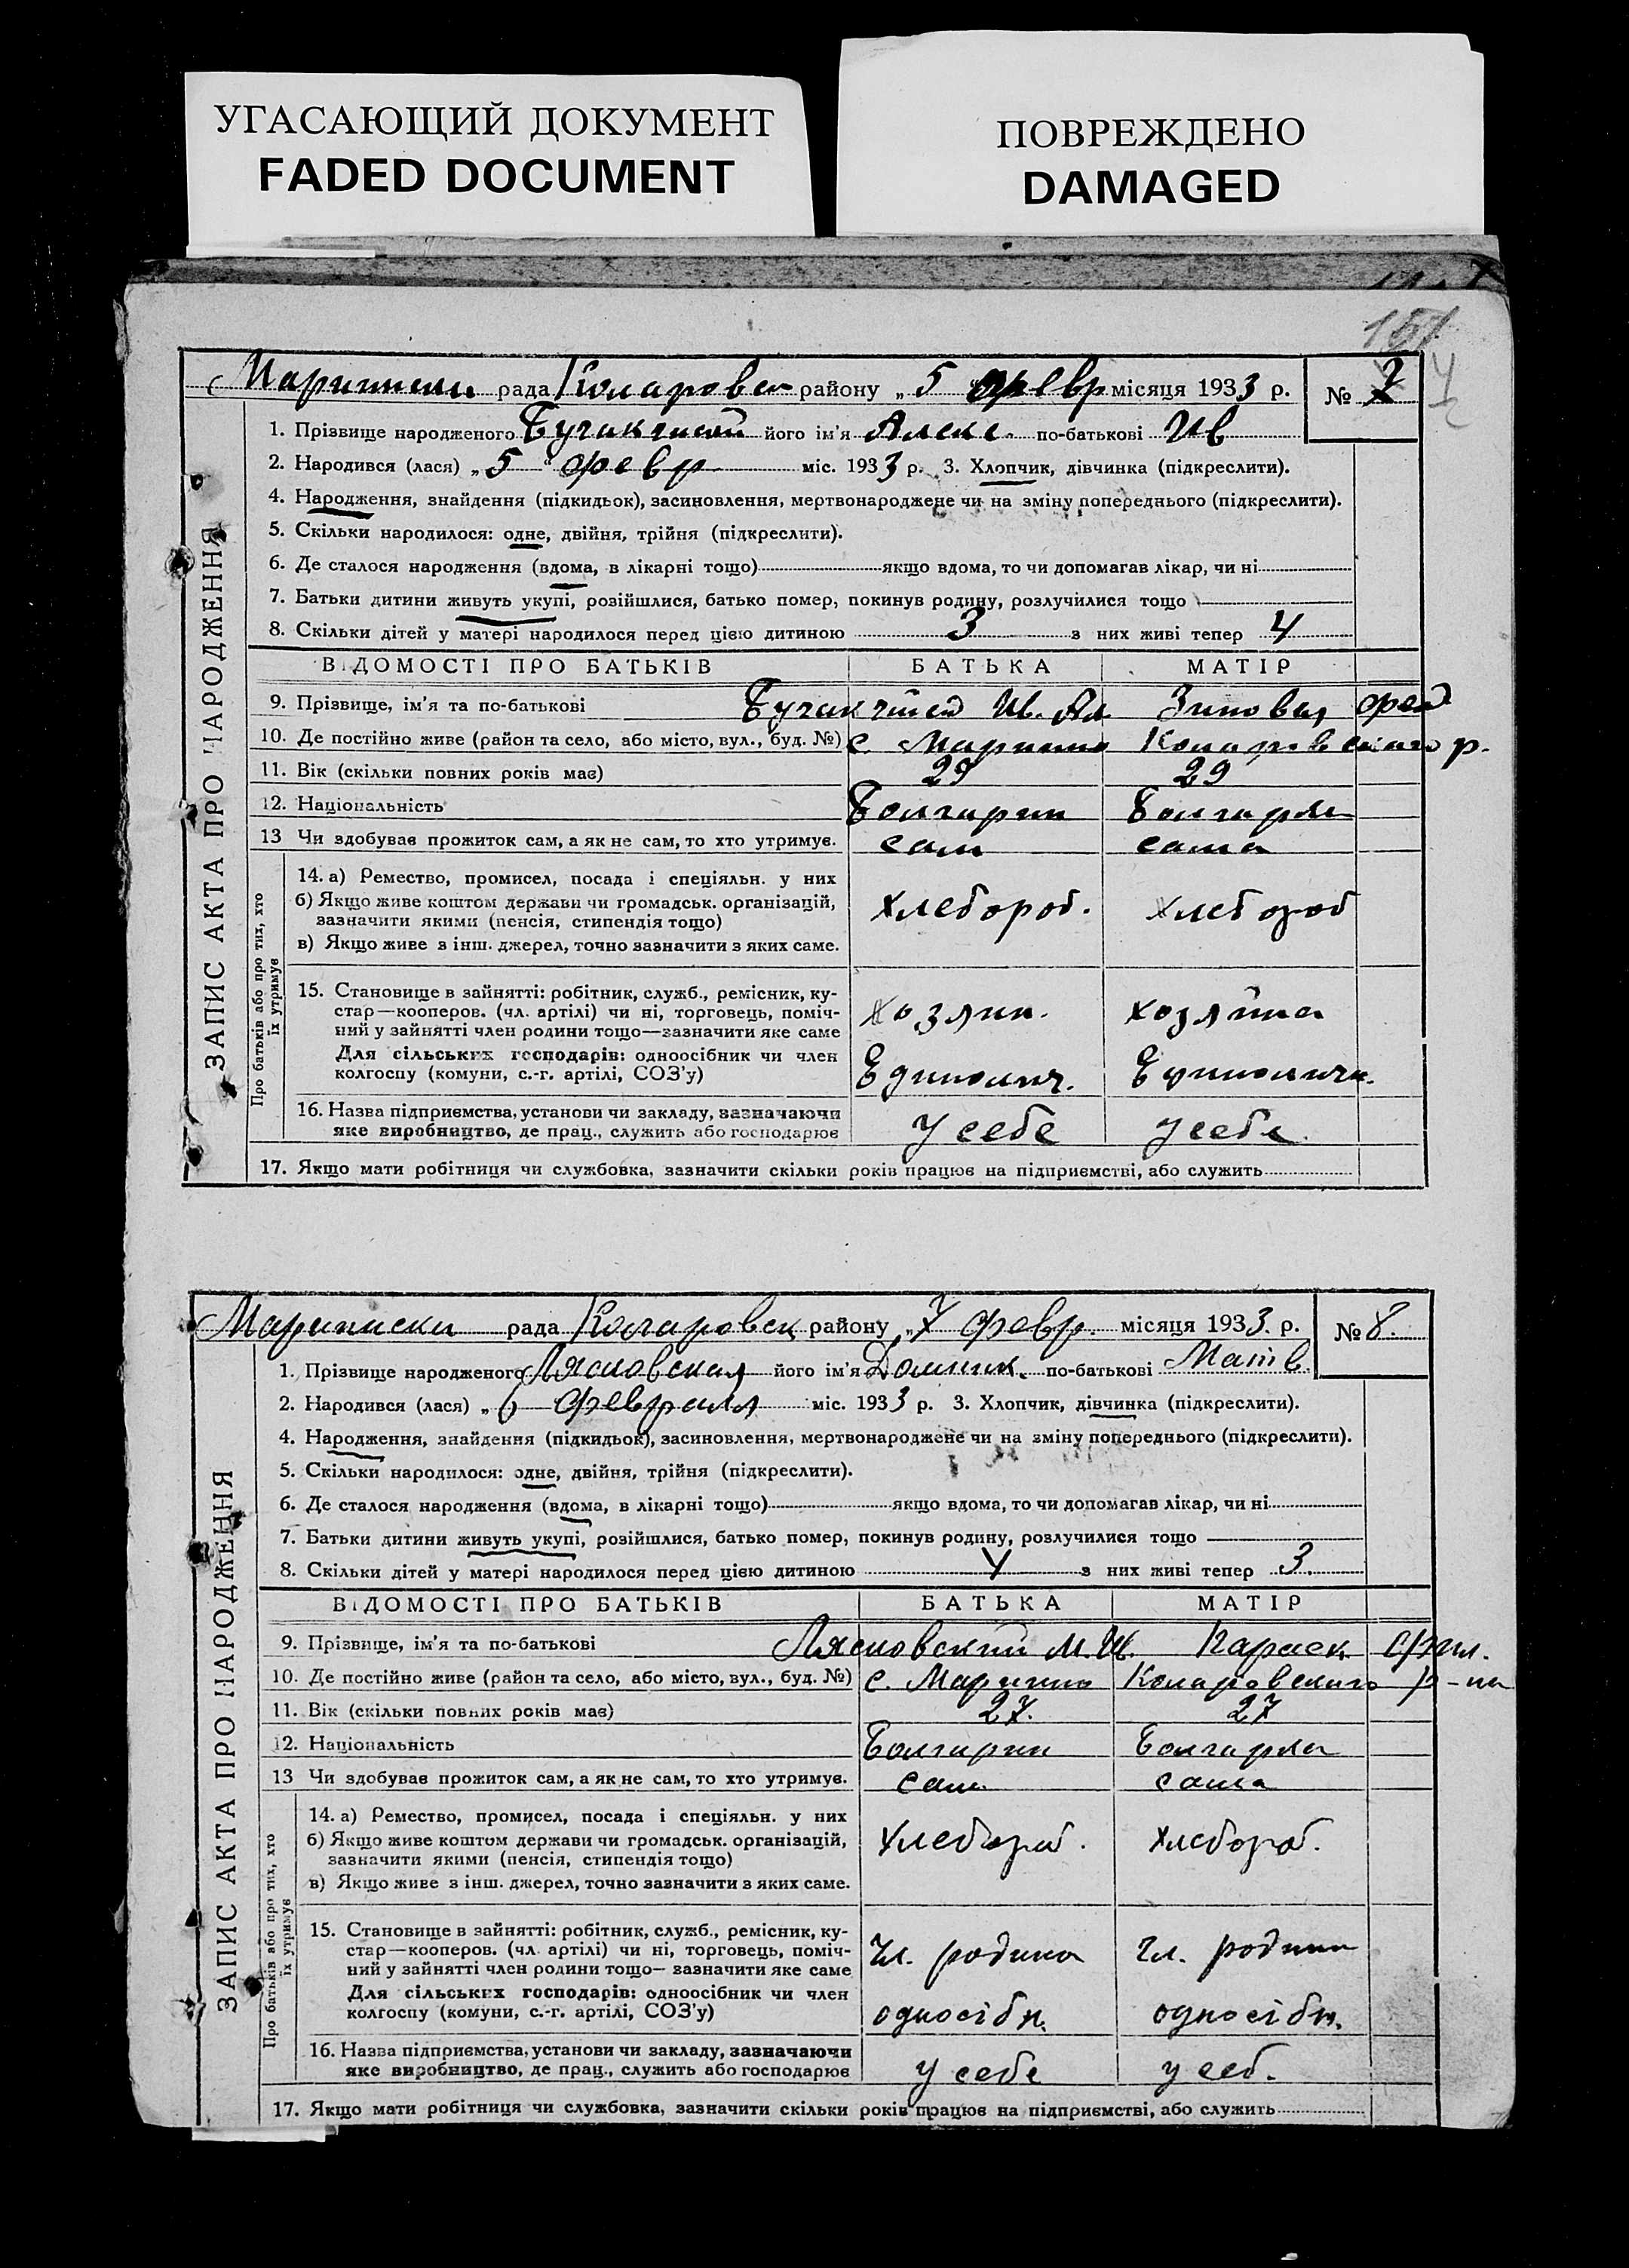 УГАСАЮЩИЙ ДОКУМЕНТ
FADED DOCUMENT
ПОВРЕЖДЕНО
DAMAGED
рада Коларовск району „ 5 " февр місяця 1933 р. № 7
1. Прізвище народженого його ім'я Алекс. по-батькові Ив
2. Народився (лася) „ 5 " февр міс. 1933 р. 3. Хлопчик, дівчинка (підкреслити).
4. Народження, знайдення (підкидьок), засиновлення, мертвонароджене чи на зміну попереднього (підкреслити).
5. Скільки народилося: одне, двійня, трійня (підкреслити).
6. Де сталося народження (вдома, в лікарні тощо) якщо вдома, то чи допомагав лікар, чи ні
7. Батьки дитини живуть укупі, розійшлися, батько помер, покинув родину, розлучилися тощо
8. Скільки дітей у матері народилося перед цією дитиною 3 з них живі тепер 4
ВІДОМОСТІ ПРО БАТЬКІВ БАТЬКА МАТІР
9. Прізвище, ім'я та по-батькові Ив. Ал. Зиновия фед
10. Де постійно живе (район та село, або місто, вул., буд. №) с. Марино Коларовского р.
11. Вік (скільки повних років має) 29 29
12. Національність Болгарин Болгарка
13 Чи здобував прожиток сам, а як не сам, то хто утримує. сам сама
14. а) Ремество, промисел, посада і спеціяльн. у них
б) Якщо живе коштом держави чи громадськ. організацій,
зазначити якими (пенсія, стипендія тощо)
Хлебороб. Хлебороб
в) Якщо живе з інш. джерел, точно зазначити з яких саме.
15. Становище в зайнятті: робітник, служб., ремісник, ку-
стар—кооперов. (чл. артілі) чи ні, торговець, поміч-
ний у зайнятті член родини тощо—зазначити яке саме
Хозяин. Хозяйка
Для сільських господарів: одноосібник чи член
колгоспу (комуни, с.-г. артілі, СОЗ'у)
Единолич. Единоличн.
16. Назва підприємства, установи чи закладу, зазначаючи
яке виробництво, де прац., служить або господарює
У себе У себе.
17. Якщо мати робітниця чи службовка, зазначити скільки років працює на підприємстві, або служить
ЗАПИС АКТА ПРО НАРОДЖЕННЯ
Про батьків або про тих, хто
їх утримує
рада Коларовск району „ 7 февр. місяця 1933. р. № 8.
1. Прізвище народженого Лясковская його ім'я Домник. по-батькові Матв.
2. Народився (лася) „ 6 февраля міс. 1933 р. 3. Хлопчик, дівчинка (підкреслити).
4. Народження, знайдення (підкидьок), засиновлення, мертвонароджене чи на зміну попереднього (підкреслити).
5. Скільки народилося: одне, двійня, трійня (підкреслити).
6. Де сталося народження (вдома, в лікарні тощо) якщо вдома, то чи допомагав лікар, чи ні
7. Батьки дитини живуть укупі, розійшлися, батько помер, покинув родину, розлучилися тощо
8. Скільки дітей у матері народилося перед цією дитиною 4 з них живі тепер 3.
ВІДОМОСТІ ПРО БАТЬКІВ БАТЬКА МАТІР
9. Прізвище, ім'я та по-батькові Лясковский М. И.
10. Де постійно живе (район та село, або місто, вул., буд. №) с. Марино Коларовского р-на
11. Вік (скільки повних років має) 27. 27
12. Національність Болгарин Болгарка
13 Чи здобував прожиток сам, а як не сам, то хто утримує. сам. сама
14. а) Ремество, промисел, посада і спеціяльн. у них
б) Якщо живе коштом держави чи громадськ. організацій,
зазначити якими (пенсія, стипендія тощо)
Хлебороб. Хлебороб.
в) Якщо живе з інш. джерел, точно зазначити з яких саме.
15. Становище в зайнятті: робітник, служб., ремісник, ку-
стар—кооперов. (чл. артілі) чи ні, торговець, поміч-
ний у зайнятті член родини тощо—зазначити яке саме
Чл. родини чл. родини
Для сільських господарів: одноосібник чи член
колгоспу (комуни, с.-г. артілі, СОЗ'у)
односібн. односібн.
16. Назва підприємства, установи чи закладу, зазначаючи
яке виробництво, де прац., служить або господарює
у себе у себ.
17. Якщо мати робітниця чи службовка, зазначити скільки років працює на підприємстві, або служить
ЗАПИС АКТА ПРО НАРОДЖЕННЯ
Про батьків або про тих, хто
їх утримує